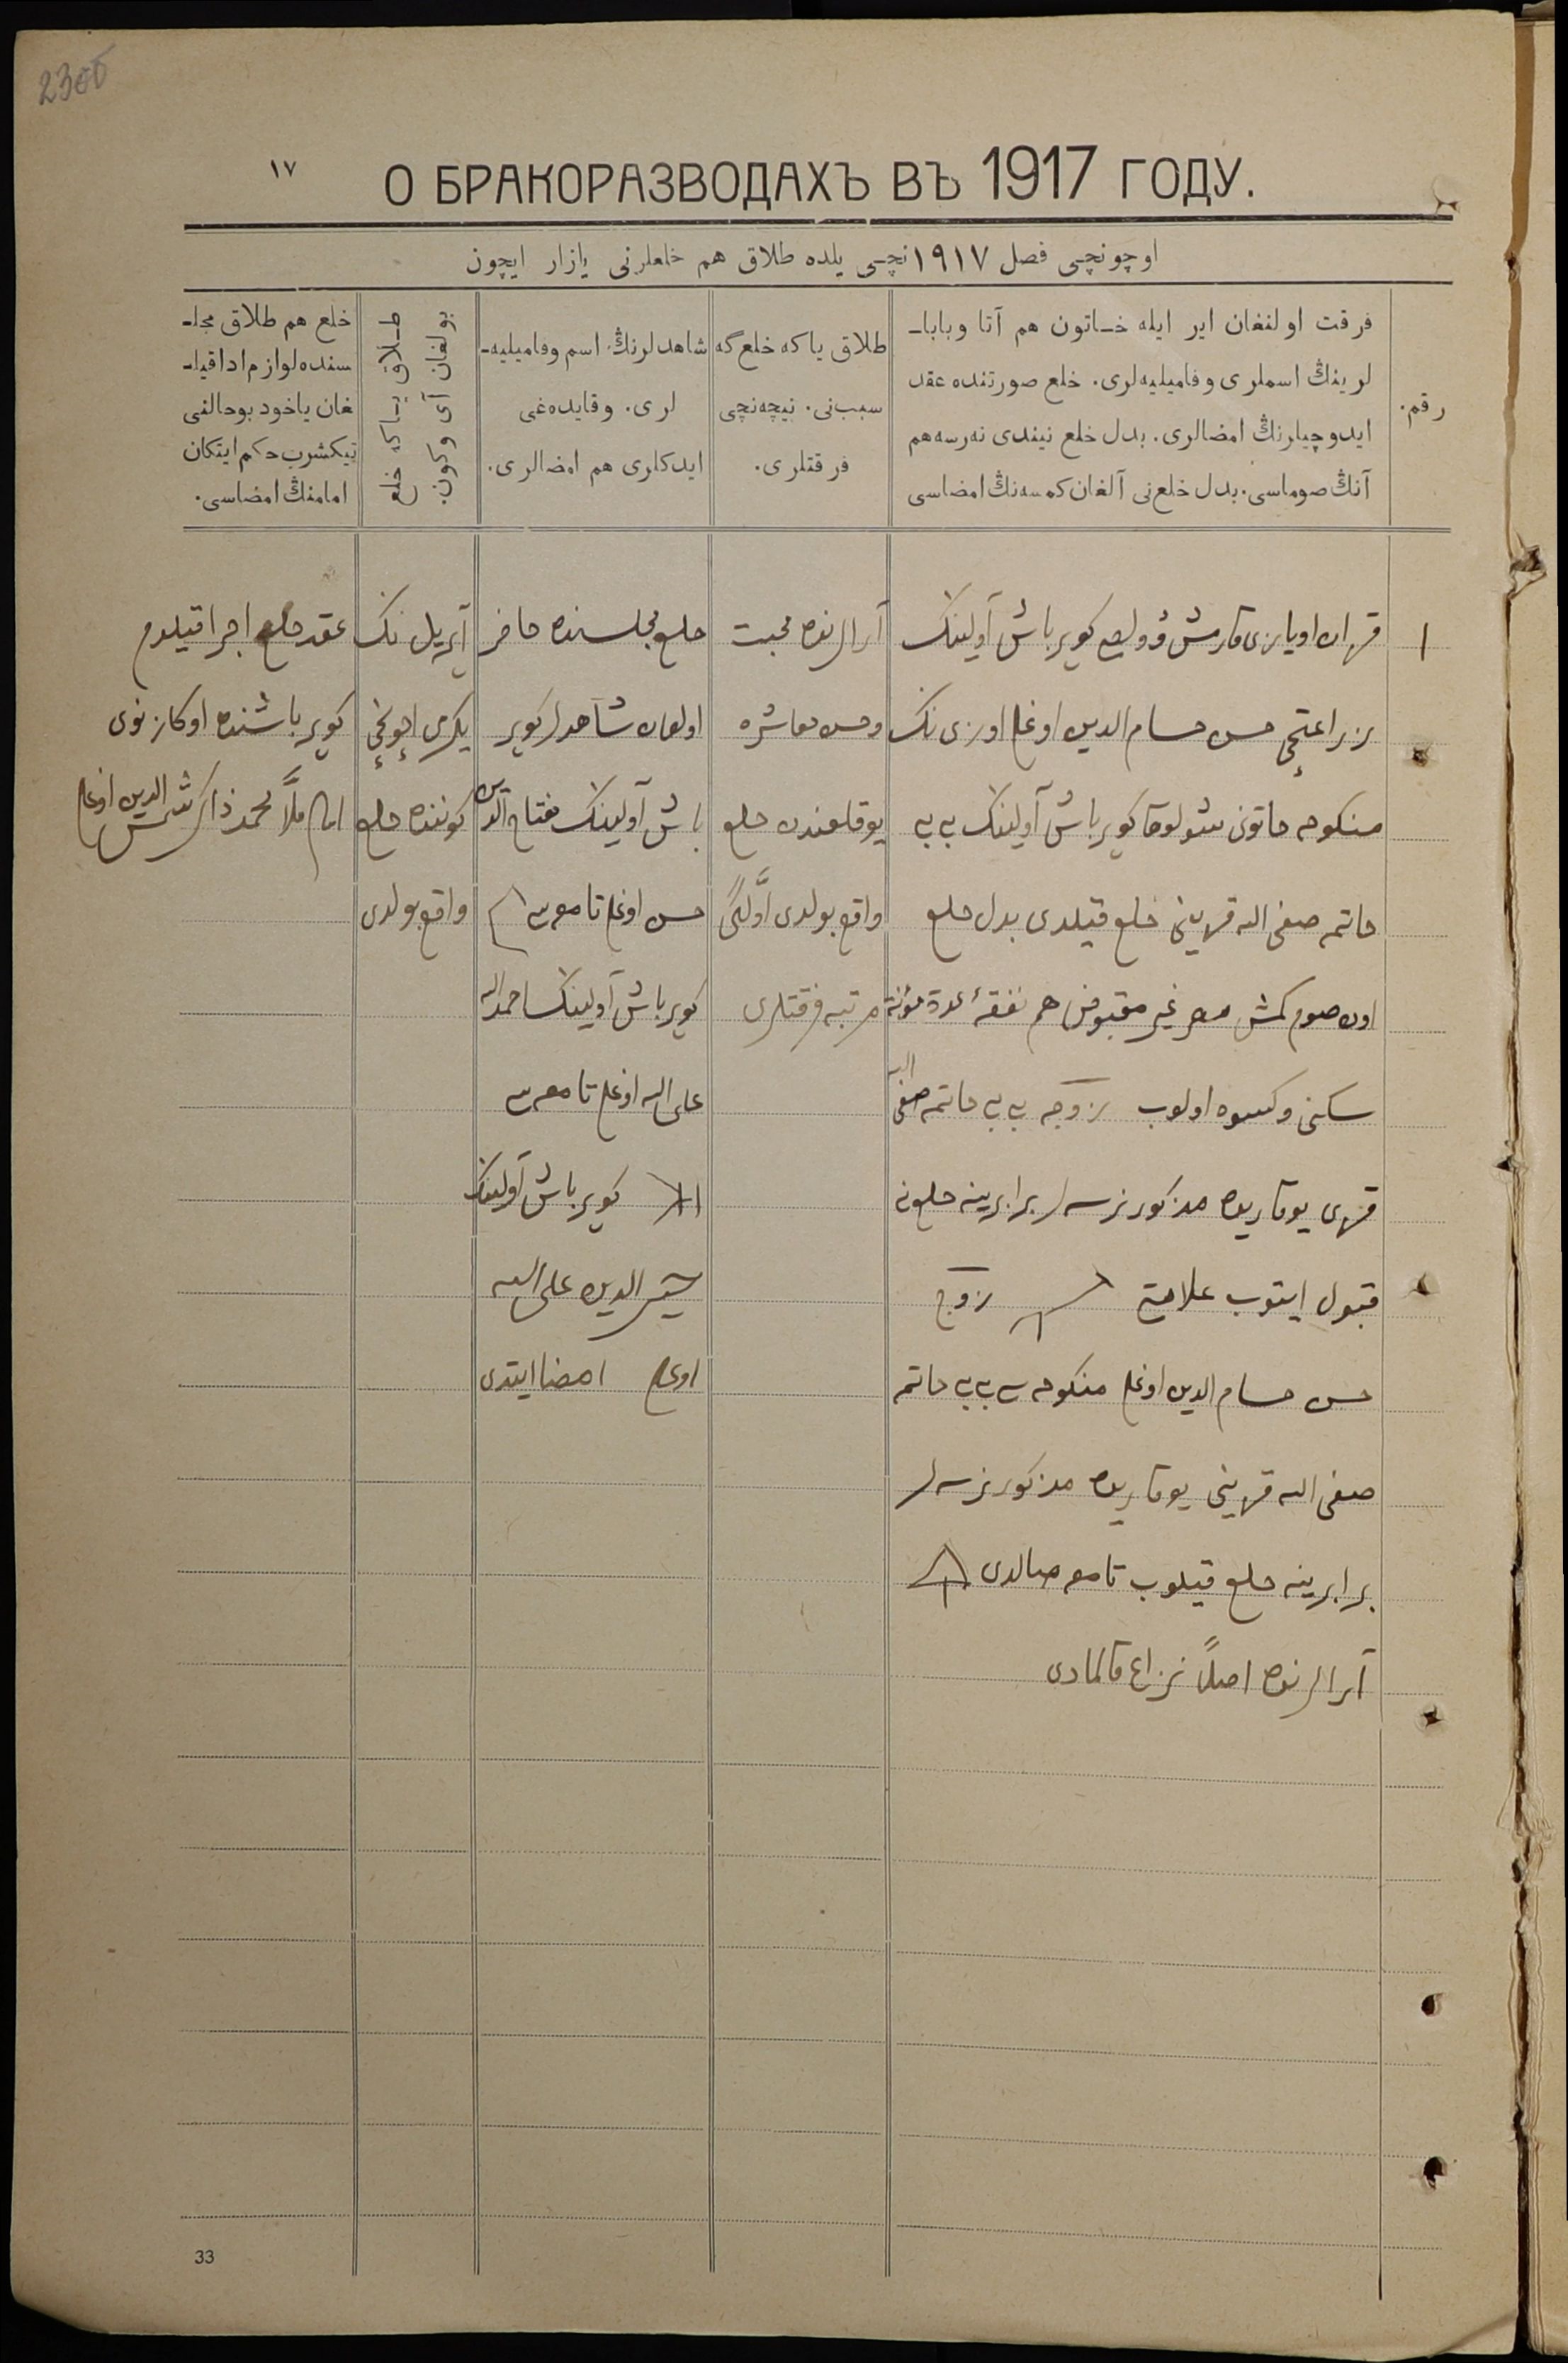 23об
١٧
О БРАКОРАЗВОДАХЪ ВЪ 1917 ГОДУ.
اوچونچی فصل ١٩١٧نچی یلده طلاق هم خلعلرنی یازار ایچون
رقم.
فرقت اولنغان ایر ایله خاتون هم آتا وبابا-
لرینڭ اسملری وفامیلیه‌لری. خلع صورتنده عقد
ایدوچیلرنڭ امضالری. بدل خلع نیندی نه‌رسه هم
آنڭ صوماسی. بدل خلع‌نی آلغان کمسه‌نڭ امضاسی
طلاق یاکه خلع گه
سبب‌نی. نیچه‌نچی
فرقتلری.
شاهدلرنڭ اسم وفامیلیه-
لری. وقایده‌غی
ایدکلری هم امضالری.
طلاق یاکه خلع
بولغان آی وکون.
خلع هم طلاق مجلـ
سنده لوازم ادا قیلـ
غان یاخود بوحالنی
تیکشرب حکم ایتکان
امامنڭ امضاسی.
١
اویازی قارمش وولصی کویر باش آولینک
زراعتچی حسن حسام الدین اوغلی اوزی نک
منکوحه خاتونی شولوق کویر باش آولینک بی بی
حاتمه صفی الله قزینی خلع قیلدی بدل خلع
اون صوم کمش مهر غیر مقبوض هم نفقهٔ عدة مؤنة
سکنی وکسوه اولوب زوجه بی بی حاتمه صفی الله
قزی یوقاریده مذکور نرسه لر برابرینه خلع نی
قبول ایتوب علامتی زوج
حسن حسام الدین اوغلی منکوحه سی بی بی حاتمه
صفی الله قزینی یوقاریده مذکور نرسه لر
برابرینه خلع قیلوب تامغه صالدی
آرالرنده اصلاً نزاع قالمادی
آرالرنده محبت
وحسن معاشره
یوقلغندن خلع
واقع بولدی اوّلگی
مرتبه فرقتلری
خلع مجلسنده حاضر
اولغان شاهدلر کویر
باش آولینک مفتاح الدین
حسن اوغلی تامغه سی
کویر باش آولینک احمدالله
علی الله اوغلی تامغه سی
کویر باش آولینک
الدین علی الله
اوغلی امضا ایتدی
آپریل نک
یکرمی اچونچی
کوننده خلع
واقع بولدی
عقد خلع اجرا قیلدم
کویر باشنده اوکازنوی
امام ملّا محمد ذاکر شمس الدین اوغلی
33